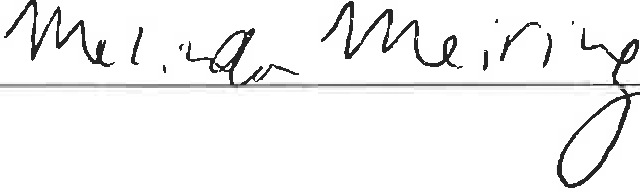 Melinda Meiring